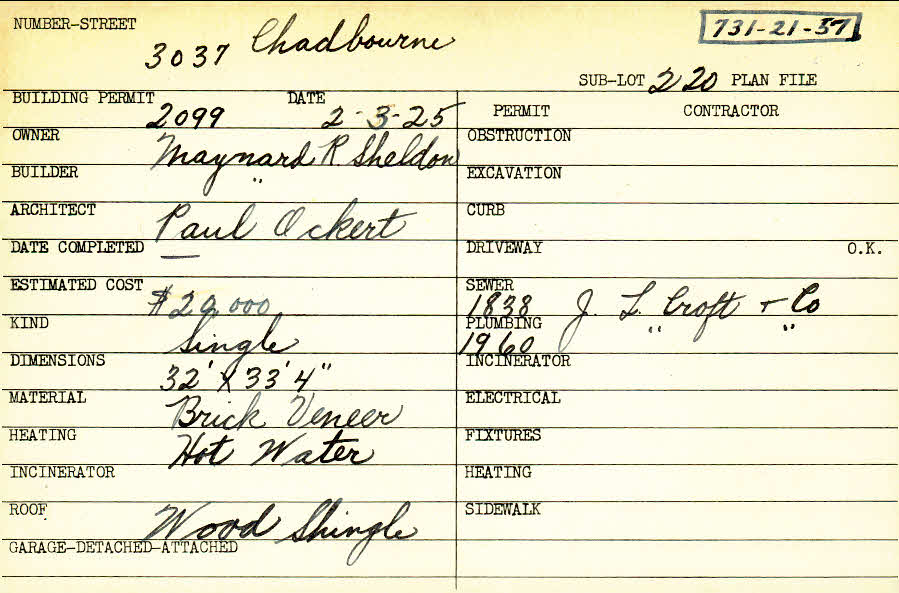 NUMBER-STREET 3037 Chadbourne 731-21-37
SUB-LOT 220 PLAN FILE
BUILDING PERMIT 2099 DATE 2-3-25 PERMIT CONTRACTOR
OWNER Maynard R. Sheldon OBSTRUCTION
BUILDER " EXCAVATION
ARCHITECT Paul Ockert CURB
DATE COMPLETED — DRIVEWAY O.K.
ESTIMATED COST $29,000 SEWER 1838 J. L. Croft + Co
KIND Single PLUMBING 1960 " "
DIMENSIONS 32' X 33' 4" INCINERATOR
MATERIAL Brick Veneer ELECTRICAL
HEATING Hot Water FIXTURES
INCINERATOR HEATING
ROOF Wood Shingle SIDEWALK
GARAGE-DETACHED-ATTACHED